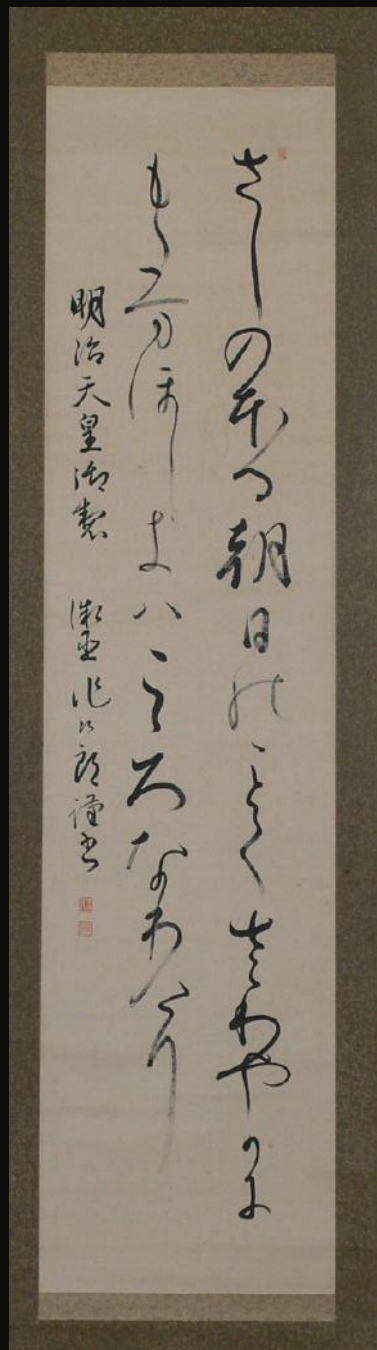 さしのほる朝日のことくさわやかに
もたまほしきハこころなりけり
明治天皇御製 作次郎謹書